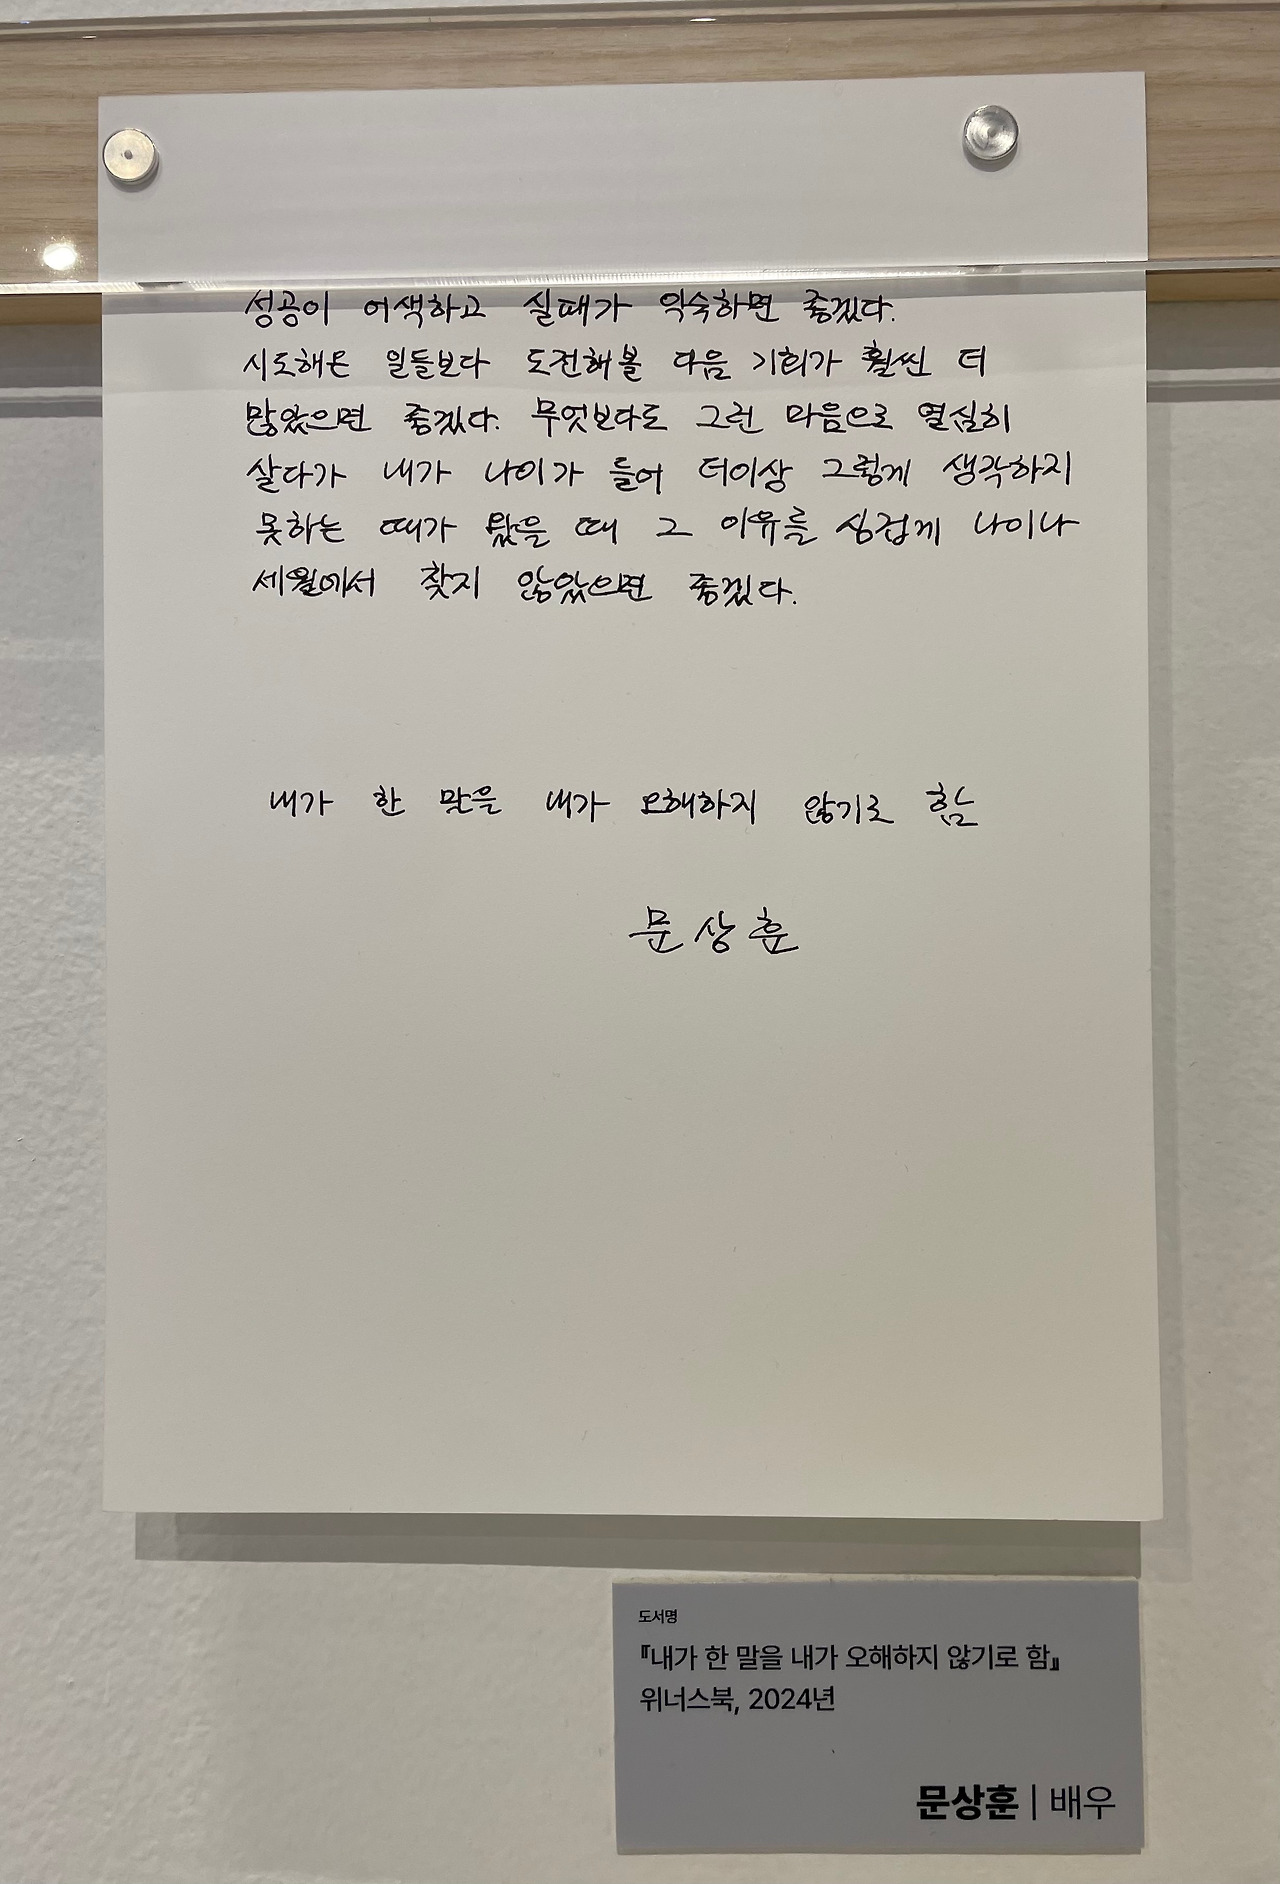 성공이 어색하고 실패가 익숙하면 좋겠다.
시도해온 일들보다 도전해볼 다음 기회가 훨씬 더
많았으면 좋겠다. 무엇보다도 그런 마음으로 열심히
살다가 내가 나이가 들어 더이상 그렇게 생각하지
못하는 때가 왔을 때 그 이유를 싱겁게 나이나
세월에서 찾지 않았으면 좋겠다.
내가 한 말을 내가 오해하지 않기로 함
문상훈
도서명
『내가 한 말을 내가 오해하지 않기로 함』
위너스북, 2024년
문상훈 | 배우